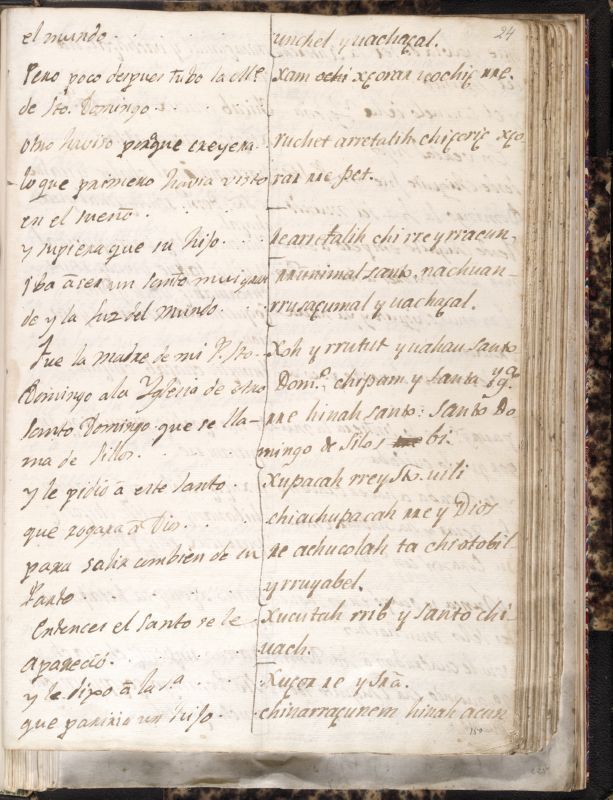 24
el mundo.
Pero poco despues tubo la Me
de Sto. Domingo.
otro haviso porque creyera
lo que primero havia visto
en el sueño.
y supiera que su hijo.
iba à ser un santo mui gran
de y la luz del mundo.
Fue la madre de mi P. Sto.
Domingo a la Yglesia de otro
santo Domingo que se lla-
ma de sillos.
y le pidio à este santo.
que rogara à Dios.
para salir con bien de su
Parto
Entences el santo se le
apareciò.
y le dixo à la sa
que paririo un hijo.
unchel y uachaçal.
xam xçoran
ruchet arretalih chiçoriç xço
ran rre pet.
re arretalih chi rre y rracun,
nrunimal santo, nachuan-
rrusaçumal y uachaçal.
Xoh y rrutut y uahau santo
Domo. chipam y santa
rre hinah santo: santo Do
mingo de silos bi.
xupacah rrey Sto. uili
chiachupacah rre y Dios
re achucolah ta chi otobil
y rruyabel.
xucutah rrib y santo chi
uach.
xuçor re y srã.
chinarraçunem hinah acun
150